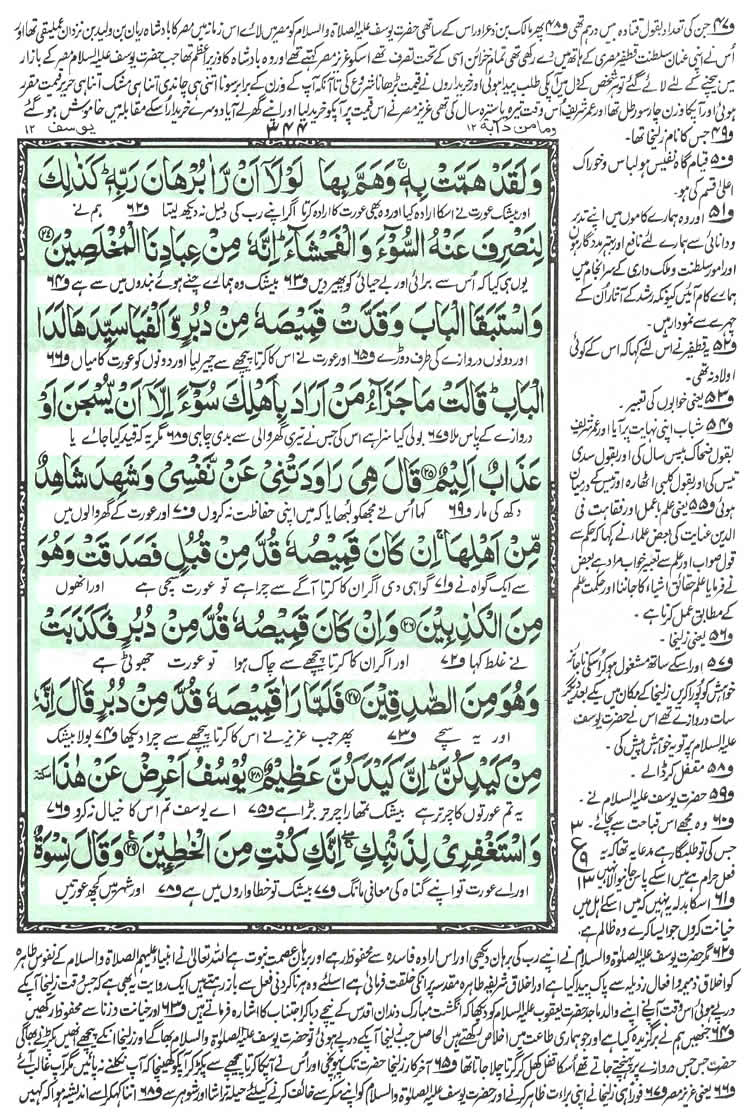 و۴۷ جن کی تعداد بقول قتادہ بیس درہم تھی و۴۸ پھر مالک بن ذعر اور اس کے ساتھی حضرت یوسف علیہ الصلاۃ والسلام کو مصر میں لائے اس زمانہ میں مصر کا بادشاہ ریان بن ولید بن نزدان عملیقی تھا اور
اُس نے اپنی عنان سلطنت قطفیر مصری کے ہاتھ میں دے رکھی تھی تمام خزائن اسی کے تحت تصرف تھے اسکو عزیز مصر کہتے تھے اور وہ بادشاہ کا وزیر اعظم تھا جب حضرت یوسف علیہ السلام مصر کے بازار
میں بیچنے کے لئے لائے گئے تو ہر شخص کے دل میں آپکی طلب پیدا ہوئی اور خریداروں نے قیمت بڑھانا شروع کی تا آنکہ آپ کے وزن کے برابر سونا اتنی ہی چاندی اتنا ہی مشک اتنا ہی حریر قیمت مقرر
ہوئی اور آپکا وزن چار سو رطل تھا اور عمر شریف اس وقت تیرہ یا سترہ سال کی تھی عزیز مصر نے اس قیمت پر آپکو خرید لیا اور اپنے گھر لے آیا دوسرے خریدار اسکے مقابلہ میں خاموش ہو گئے
ومامن دآبۃ ۱۲
۳۴۴
یوسف ۱۲
و۴۹ جس کا نام زلیخا تھا۔
و۵۰ قیام گاہ نفیس ہو لباس و خوراک
اعلٰی قسم کی ہو۔
و۵۱ اور وہ ہمارے کاموں میں اپنے تدبر
و دانائی سے ہمارے لئے نافع اور بہتر مددگار ہوں
اور امور سلطنت و ملک داری کے سرانجام میں
ہمارے کام آئیں کیونکہ رشد کے آثار اُن کے
چہرے سے نمودار ہیں۔
و۵۲ یہ قطفیر نے اس لئے کہا کہ اس کے کوئی
اولاد نہ تھی۔
و۵۳ یعنی خوابوں کی تعبیر۔
و۵۴ شباب اپنی نہایت پر آیا اور عمر شریف
بقول ضحاک بیس سال کی اور بقول سدی
تیس کی اور بقول کلبی اٹھارہ اور تیس کے درمیان
ہوئی و۵۵ یعنی علم با عمل اور نقاہت فی
الدین عنایت کی بعض علماء نے کہا کہ حکم سے
قول صواب اور علم سے تعبیر خواب مراد ہے بعض
نے فرمایا علم حقائق اشیاء کا جاننا اور حکمت علم
کے مطابق عمل کرنا ہے۔
و۵۶ یعنی زلیخا۔
و۵۷ اور اسکے ساتھ مشغول ہو کر اسکی ناجائز
خواہش کو پورا کریں زلیخا کے مکان میں یکے بعد دیگرے
سات دروازے تھے اس نے حضرت یوسف
علیہ السلام پر تو یہ خواہش پیش کی۔
و۵۸ مقفل کر ڈالے۔
و۵۹ حضرت یوسف علیہ السلام نے۔
و۶۰ وہ مجھے اس قباحت سے بچائے
جس کی تو طلبگار ہے مدعا یہ تھا کہ یہ
فعل حرام ہے میں اسکے پاس جانے والا نہیں
و۶۱ اسکا بدلہ یہ نہیں کہ میں اسکے اہل میں
خیانت کروں جو ایسا کرے وہ ظالم ہے۔
۳
ع
۹
۱۳
وَلَقَدْ هَمَّتْ بِهٖ ۚ وَهَمَّ بِهَا لَوْلَاۤ اَنْ رَّاٰ بُرْهَانَ رَبِّهٖ ؕ كَذٰلِكَ
اور بیشک عورت نے اسکا ارادہ کیا اور وہ بھی عورت کا ارادہ کرتا اگر اپنے رب کی دلیل نہ دیکھ لیتا و۶۲ ہم نے
لِنَصْرِفَ عَنْهُ السُّوْٓءَ وَالْفَحْشَآءَ ؕ اِنَّهٗ مِنْ عِبَادِنَا الْمُخْلَصِيْنَ ﴿۲۴﴾
یوں ہی کیا کہ اُس سے برائی اور بے حیائی کو پھیر دیں و۶۳ بیشک وہ ہمارے چنے ہوئے بندوں میں سے ہے و۶۴
وَاسْتَبَقَا الْبَابَ وَقَدَّتْ قَمِيْصَهٗ مِنْ دُبُرٍ وَّاَلْفَيَا سَيِّدَهَا لَدَا
اور دونوں دروازے کی طرف دوڑے و۶۵ اور عورت نے اس کا کرتا پیچھے سے چیر لیا اور دونوں کو عورت کا میاں و۶۶
الْبَابِ ؕ قَالَتْ مَا جَزَآءُ مَنْ اَرَادَ بِاَهْلِكَ سُوْٓءًا اِلَّاۤ اَنْ يُّسْجَنَ اَوْ
دروازے کے پاس ملا و۶۷ بولی کیا سزا ہے اس کی جس نے تیری گھر والی سے بدی چاہی و۶۸ مگر یہ کہ قید کیا جائے یا
عَذَابٌ اَلِيْمٌ ﴿۲۵﴾ قَالَ هِيَ رَاوَدَتْنِيْ عَنْ نَّفْسِيْ وَشَهِدَ شَاهِدٌ
دکھ کی مار و۶۹ کہا اُس نے مجھ کو لبھایا کہ میں اپنی حفاظت نہ کروں و۷۰ اور عورت کے گھر والوں میں
مِّنْ اَهْلِهَا ۚ اِنْ كَانَ قَمِيْصُهٗ قُدَّ مِنْ قُبُلٍ فَصَدَقَتْ وَهُوَ
سے ایک گواہ نے و۷۱ گواہی دی اگر ان کا کرتا آگے سے چرا ہے تو عورت سچی ہے اور انھوں
مِنَ الْكٰذِبِيْنَ ﴿۲۶﴾ وَاِنْ كَانَ قَمِيْصُهٗ قُدَّ مِنْ دُبُرٍ فَكَذَبَتْ
نے غلط کہا و۷۲ اور اگر ان کا کرتا پیچھے سے چاک ہوا تو عورت جھوٹی ہے
وَهُوَ مِنَ الصّٰدِقِيْنَ ﴿۲۷﴾ فَلَمَّا رَاٰ قَمِيْصَهٗ قُدَّ مِنْ دُبُرٍ قَالَ اِنَّهٗ
اور یہ سچے و۷۳ پھر جب عزیز نے اس کا کرتا پیچھے سے چرا دیکھا و۷۴ بولا بیشک
مِنْ كَيْدِكُنَّ ؕ اِنَّ كَيْدَكُنَّ عَظِيْمٌ ﴿۲۸﴾ يُوْسُفُ اَعْرِضْ عَنْ هٰذَا سکتۃ
یہ تم عورتوں کا چرتر ہے بیشک تمھارا چرتر بڑا ہے و۷۵ اے یوسف تم اس کا خیال نہ کرو و۷۶
وَاسْتَغْفِرِيْ لِذَنْۢبِكِ ۖۚ اِنَّكِ كُنْتِ مِنَ الْخٰطِـِٕيْنَ ﴿۲۹﴾ وَقَالَ نِسْوَةٌ
اور اے عورت تو اپنے گناہ کی معافی مانگ و۷۷ بیشک تو خطاواروں میں ہے و۷۸ اور شہر میں کچھ عورتیں
و۶۲ مگر حضرت یوسف علیہ الصلٰوۃ والسلام نے اپنے رب کی برہان دیکھی اور اس ارادہ فاسدہ سے محفوظ رہے اور برہان عصمت نبوت ہے اللہ تعالٰی نے انبیاء علیہم الصلاۃ والسلام کے نفوس طاہرہ
کو اخلاق ذمیمہ و افعال رذیلہ سے پاک پیدا کیا ہے اور اخلاق شریفہ طاہرہ مقدسہ پر انکی خلقت فرمائی ہے اسلئے وہ ہر ناکردنی فعل سے باز رہتے ہیں ایک روایت یہ بھی ہے کہ جس وقت زلیخا آپکے
درپے ہوئی اس وقت آپ نے اپنے والد ماجد حضرت یعقوب علیہ السلام کو دیکھا کہ انگشت مبارک دندان اقدس کے نیچے دبا کر اجتناب کا اشارہ فرماتے ہیں و۶۳ اور خیانت و زنا سے محفوظ رکھیں
و۶۴ جنھیں ہم نے برگزیدہ کیا ہے اور جو ہماری طاعت میں اخلاص رکھتے ہیں الحاصل جب زلیخا آپکے درپے ہوئی تو حضرت یوسف علیہ الصلٰوۃ والسلام بھاگے اور زلیخا انکے پیچھے انھیں پکڑنے بھاگی
حضرت جس جس دروازے پر پہنچتے جاتے تھے اُسکا قفل کھل کر گرتا چلا جاتا تھا و۶۵ آخر کار زلیخا حضرت تک پہونچی اور اُس نے آپکا کرتا پیچھے سے پکڑ کر آپکو کھینچا کہ آپ نکلنے نہ پائیں مگر آپ غالب آئے
و۶۶ یعنی عزیز مصر و۶۷ فوراً ہی زلیخا نے اپنی براءت ظاہر کرنے اور حضرت یوسف علیہ الصلٰوۃ والسلام کو اپنے مکر سے خائف کرنے کیلئے حیلہ تراشا اور شوہر سے و۶۸ اتنا کہہ کر اسے اندیشہ ہوا کہ کہیں